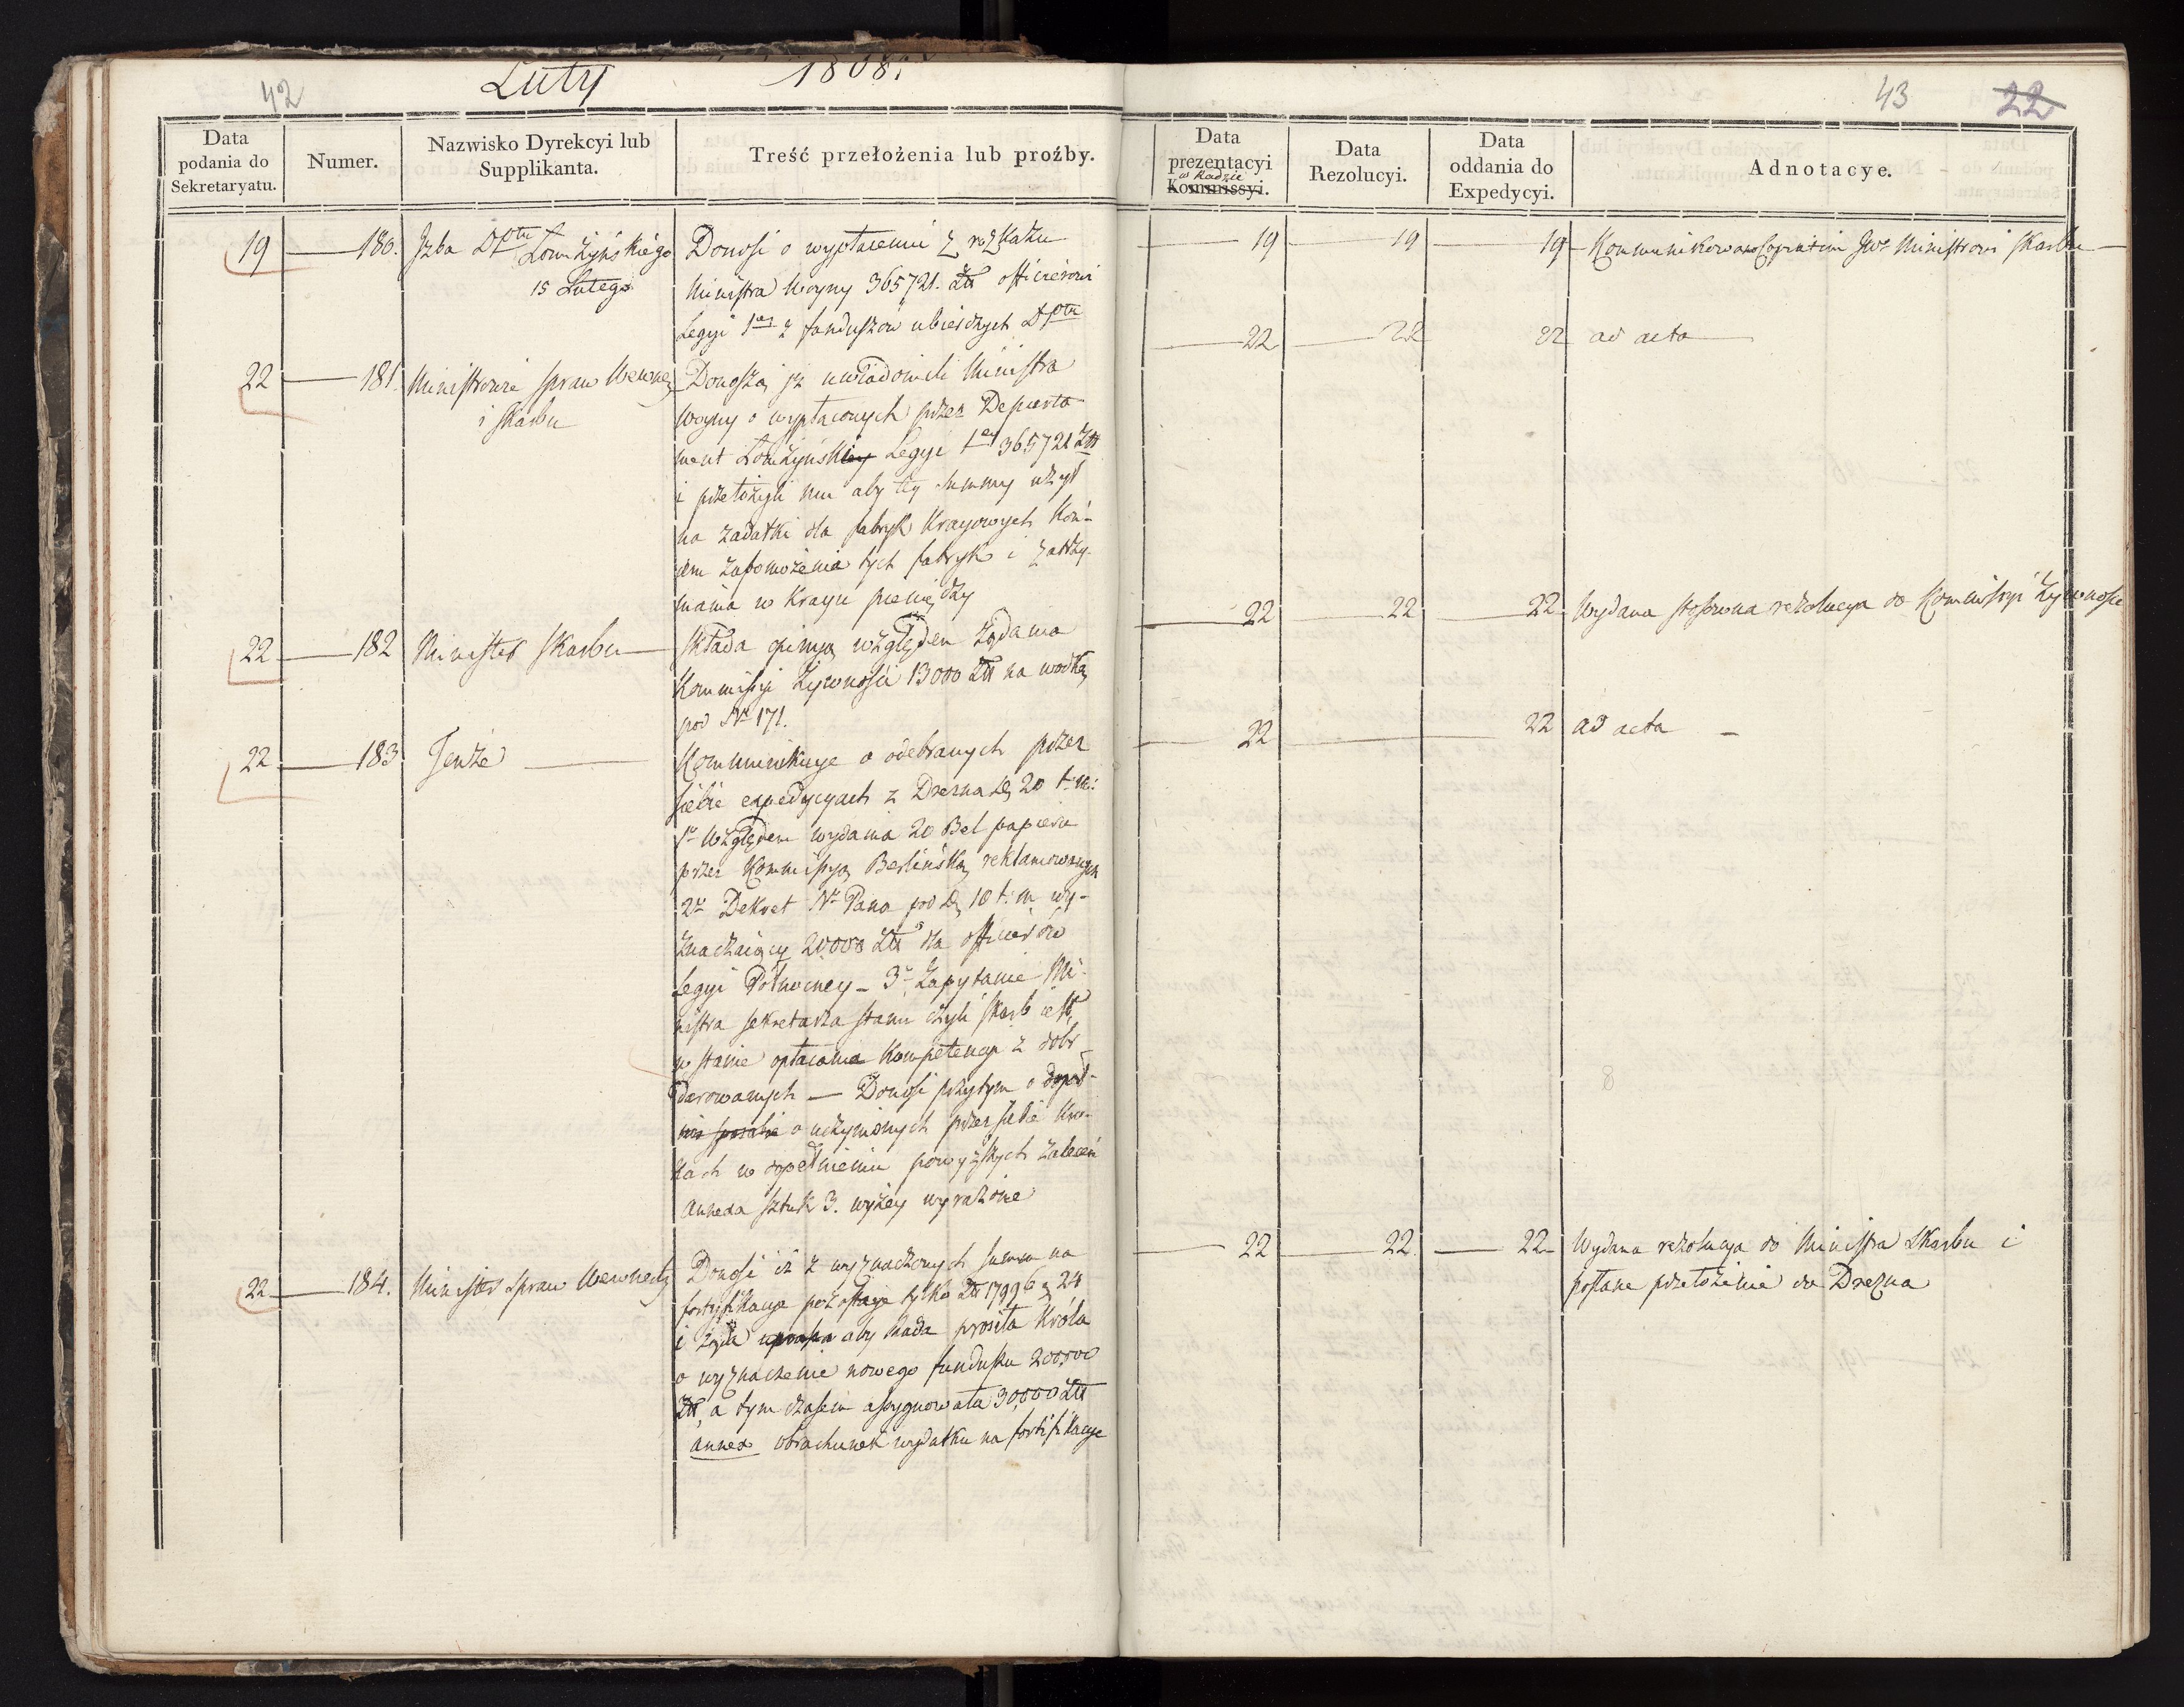 42
Luty 1808.
43 22
Data podania do Sekretaryatu.
Numer.
Nazwisko Dyrekcyi lub Supplikanta.
Treść przełożenia lub proźby.
Data prezentacyi w Radzie Kommissyi.
Data Rezolucyi.
Data oddania do Expedycyi.
Adnotacye.
19 180. Izba Dptu Łomżyńskiego
15 Lutego
Donosi o wypłaceniu z rozkazu
Ministra Woyny 365721. Złł officierowi
Legyi 1ey z funduszów ubieczych Dptu
19 19 19 Kommunikowano Copiatim JWu Ministrowi Skarbu
22 181. Ministrowie spraw Wewnę
i Skarbu
Donoszą iż uwiadomili Ministra
Woyny o wypłaconych przez Departa
ment Łomżyński Legyi 1ey 365721 Złł
i przełożyli mu aby tey summy użył
na zadatki dla fabryk Kraiowych Koń-
cem zapomożenia tych fabryk i zatrzy-
mania w Kraiu pieniędzy
22 22 22 ad acta
22 182 Minister Skarbu
Składa opinią względem żądania
Kommissyi Żywności 13000 Złł na wodkę
pod Nr 171.
22 22 22 Wydana stosowna rezolucya do Kommissyi Żywności
22 183 Tenże
Kommunikuje o odebranych przez
siebie expedycyach z Drezna dę 20 t: m:
1o Względem wydania 20 Bel papieru
przez Kommissyą Berlińską reklamowanych
2o Dekret Nro Pana pod dę 10 t: m wy-
znaczaiący 20000 Złł dla officierów
Legyi Północney - 3o Zapytanie Mi-
nistra Sekretarza Stanu czyli Skarb iest
w stanie opłacania Kompetencyi z dobr
darowanych — Donosi przytym o dopeł-
o uczynionych przez siebie Kro-
kach w dopełnieniu powyższych zaleceń
Annexa sztuk 3. wyżey wyrażone
22 22 ad acta
22 184. Minister Spraw Wewnętrz
Donosi iż z wyznaczonych summ na
fortyfikacye pozostaje tylko Złł 17996 g 24
i żąda aby Rada prosiła Króla
o wyznaczenie nowego funduszu 200,000
Złł, a tym czasem assygnowała 30,000 Złł
annex obrachunek wydatku na fortifikacye
22 22. 22 Wydana rezolucya do Ministra Skarbu i
posłane przełożenie do Drezna